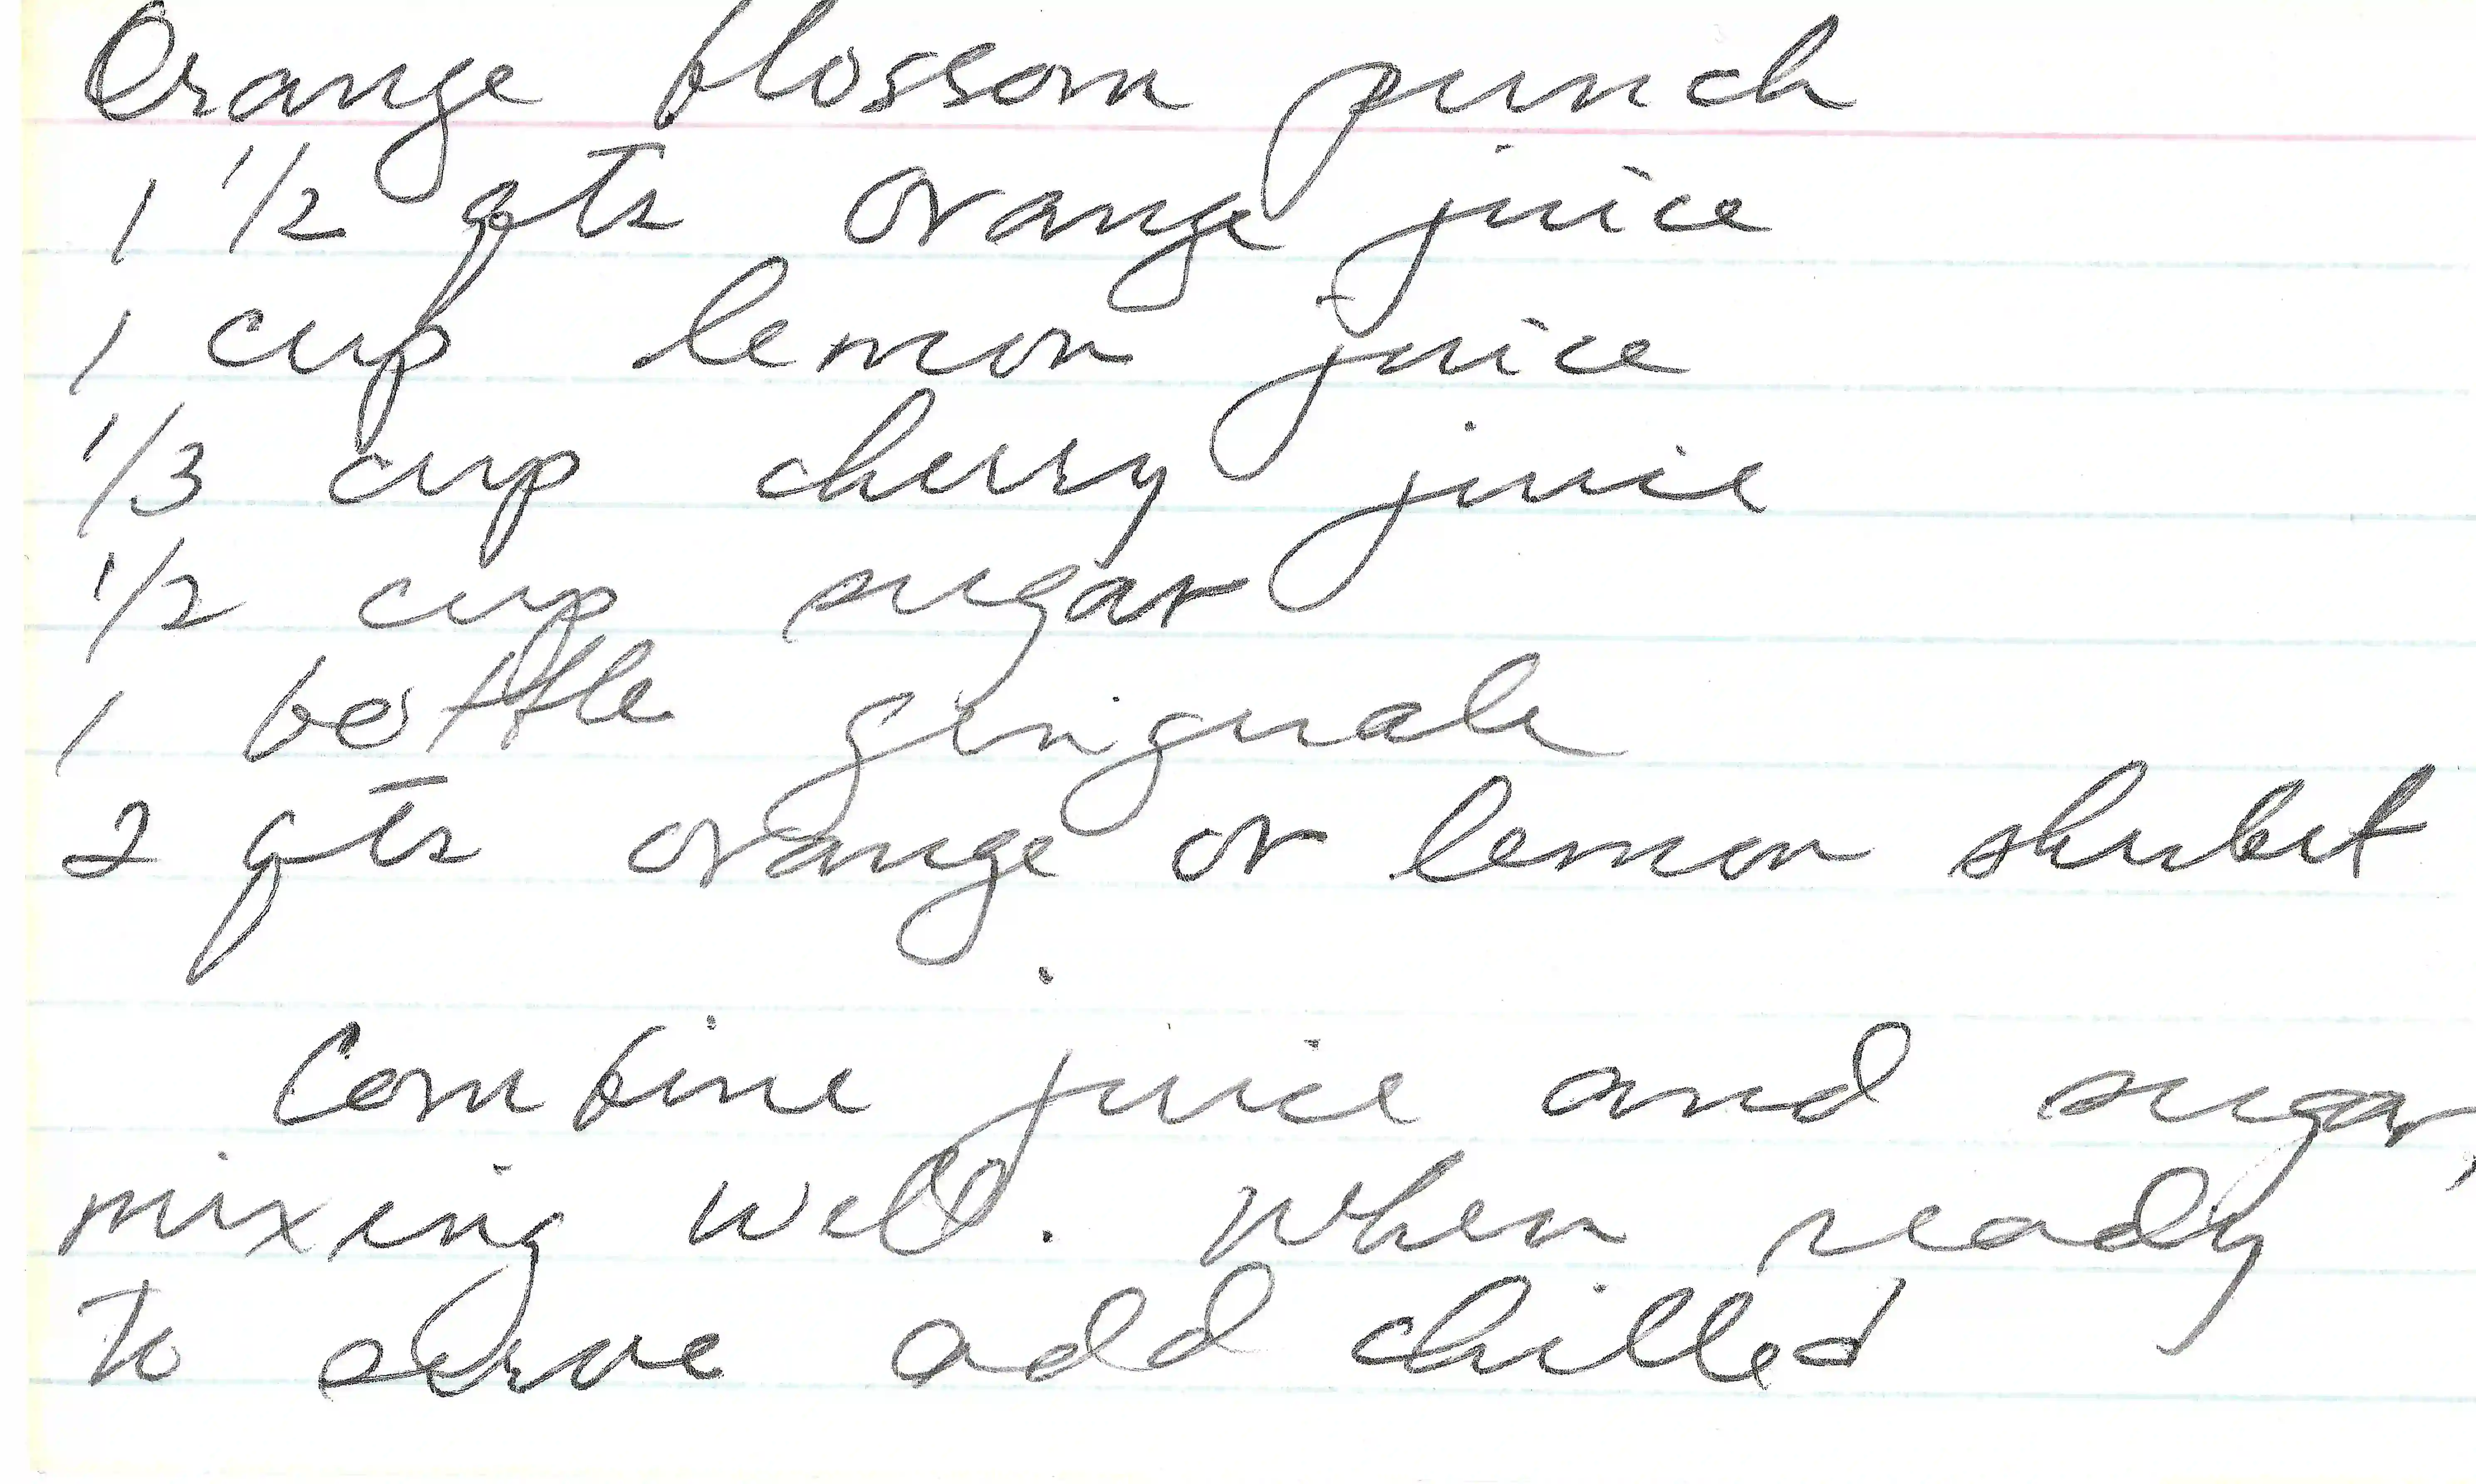 Orange blossom punch
1 1/2 qts orange juice
1 cup lemon juice
1/3 cup cherry juice
1/2 cup sugar
1 bottle gingerale
2 qts orange or lemon sherbet
Combine juice and sugar,
mixing well. When ready
to serve add chilled